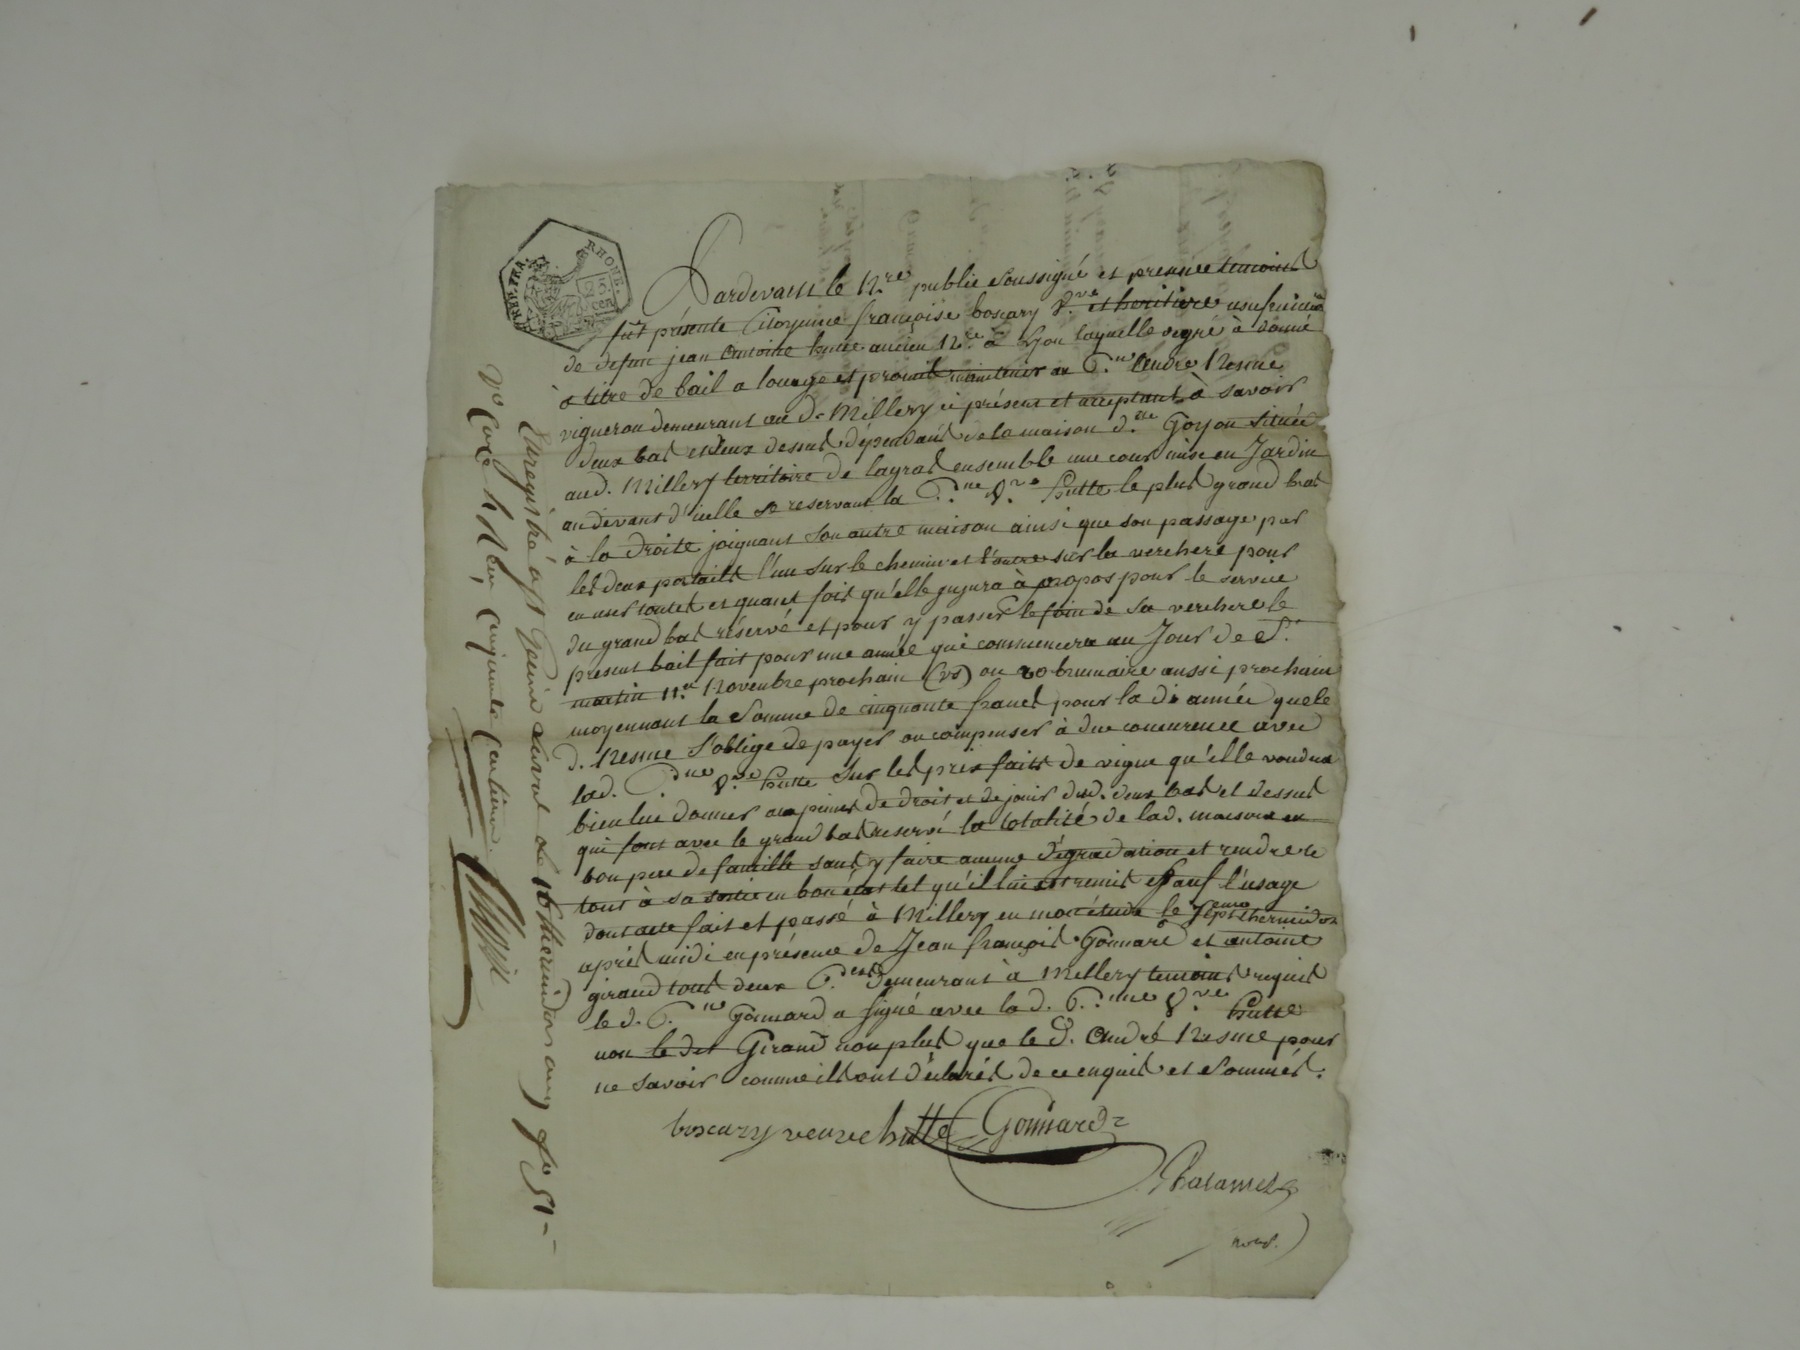 RÉP. FRA.
RHONE.
25 cen
Pardevant le Nre public soussigné et présence temoins
fût présente Citoyenne françoise boscary Vve et heritiere usufruitiere
de defunt jean Antoine hutte ancien Nre a Lyon laquelle degré à donné
a titre de bail a louage et promet maintenir au Cen André Nesme
vigneron demeurant au d. Millery ci présent et acceptant à savoir
deux bas et deux dessus dépendant de la maison dite Goyon située
aud. Millery territoire de layrat ensemble une cour mise en Jardin
au devant d'icelle se reservant la C.ne V.ve hutte le plus grand bas
à la droite joignant son autre maison ainsi que son passage par
les deux portails l'un sur le chemin et l'autre sur la verchere pour
en user toutes et quant fois qu'elle jujura à propos pour le service
du grand bas réservé et pour y passer le foin de sa verchere le
present bail fait pour une année qui commencera au Jour de St.
martin 11.e Novembre prochain (vs) ou 20 brumaire aussi prochain
moyennant la Somme de cinquante francs pour la de année que le
d. Nesme s'oblige de payer ou compenser à due concurrence avec
lad. C.ne V.ve hutte sur les prix faits de vigne qu'elle voudra
bien lui donner aux peines de droit et de jouir desd. deux bas et dessus
qui font avec le grand bas reservé la totalité de lad. maison en
bon pere de famille sans y faire aucune dégradation et rendre le
tout à sa sortie en bon état tel qu'il lui est remis et sauf l'usage
dont acte fait et passé à Millery en mon étude le sept thermidor
après midi en présence de Jean françois Gonnard et antoine
giraud tous deux C.ens demeurant à Millery temoins requis
le d. C.en Gonnard a signé avec la d. C.nne V.ve hutte
non le dit Giraud non plus que le d. André Nesme pour
ne savoir comme ils ont déclarés de ce enquis et sommés.
boscary veuve hutte Gonnard
Enregistré à St Genis Laval le 16 thermidor an fo 51